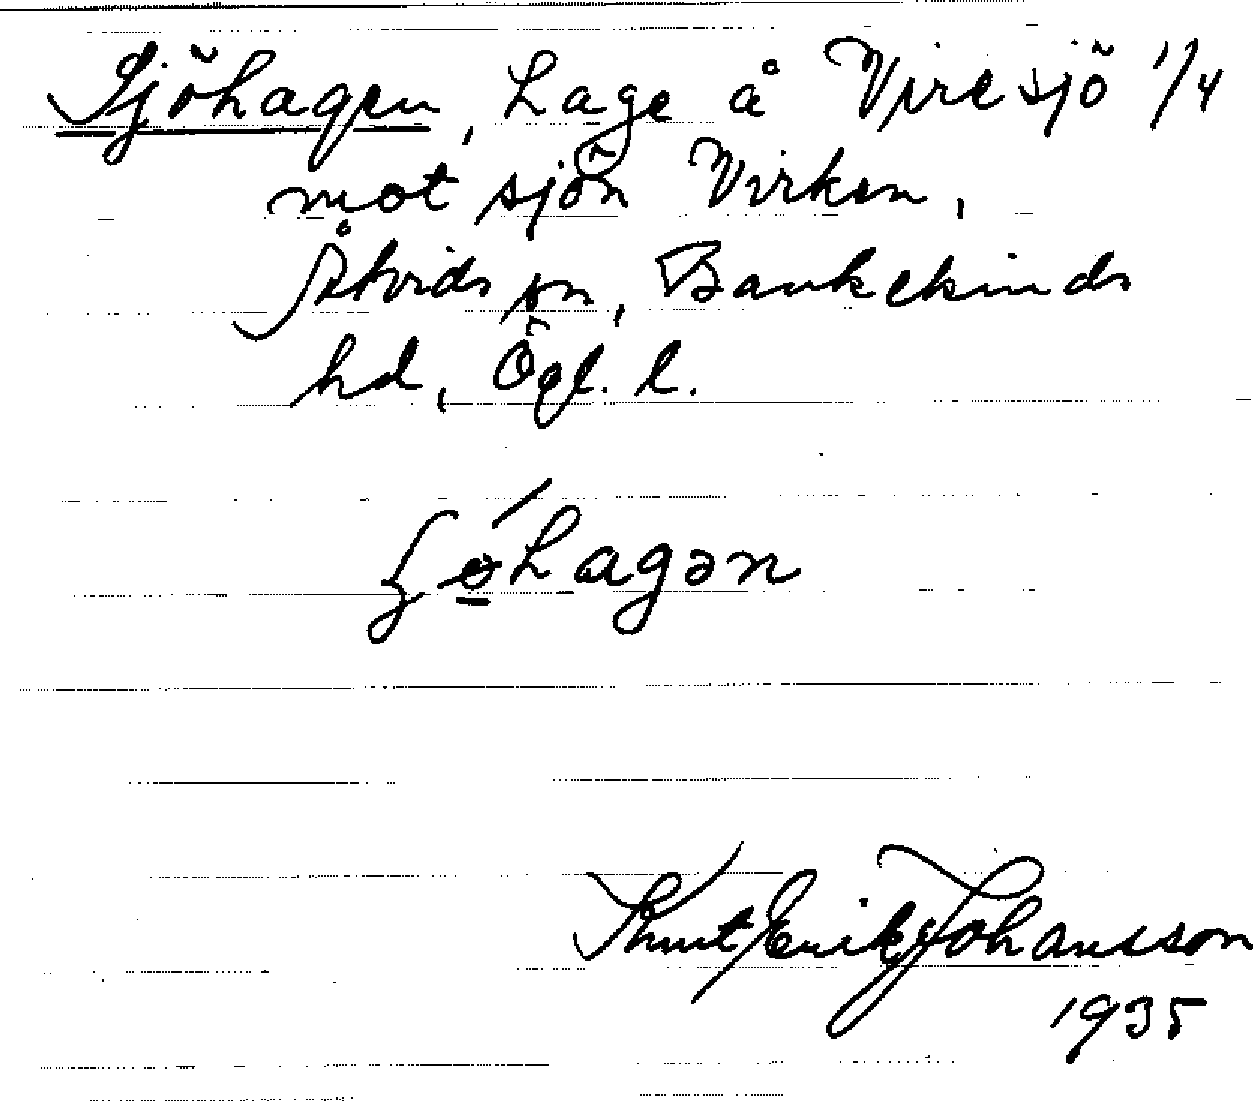 Sjöhagen, hage å Viresjö 1/4
mot sjön Virken,
Åtvids sn, Bankekinds
hd, Ögl. l.
ʃǿ̱hagən
Knut Erik Johansson
1935